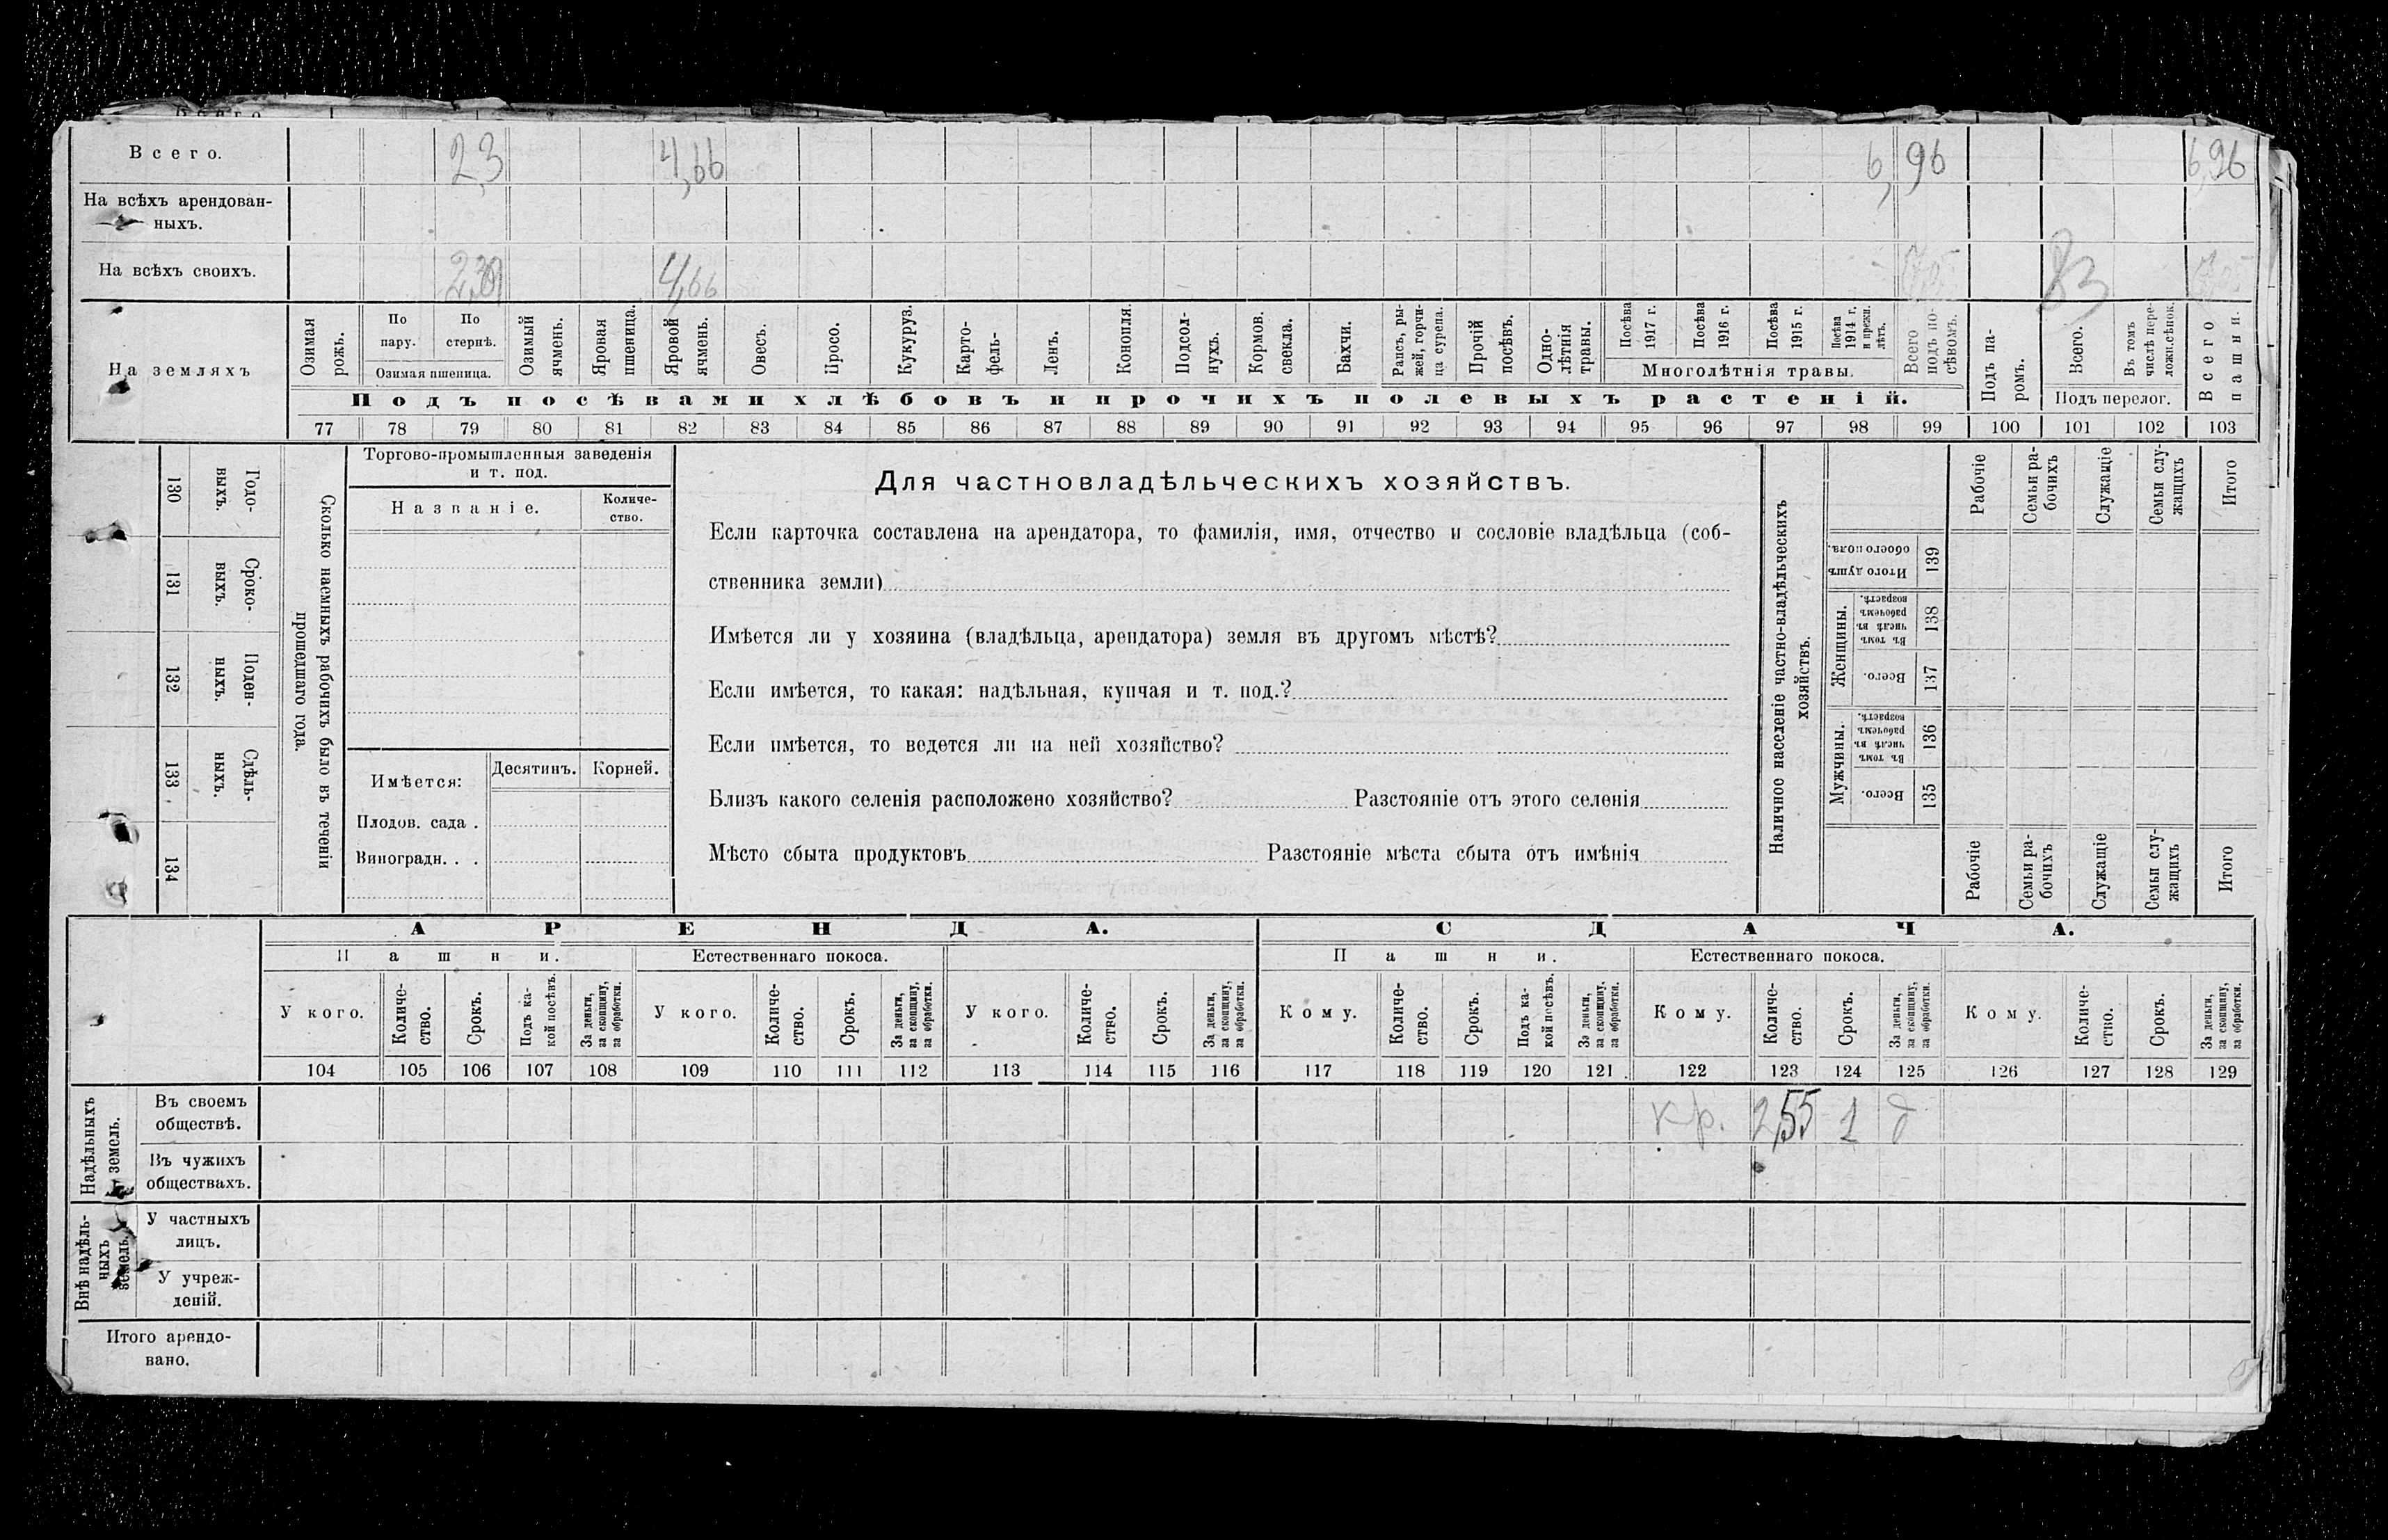 Всего. 2,3 4,66 6,96 6,96
На всѣхъ арендован-
ныхъ.
На всѣхъ своихъ. 4,66 83
На земляхъ
Озимая рожь.
По пару.
По стернѣ.
Озимая пшеница.
Озимый ячмень.
Яровая пшеница.
Яровой ячмень.
Овесъ.
Просо.
Кукуруз.
Карто-
фель.
Ленъ.
Конопля.
Подсол-
нухъ.
Кормов.
свекла.
Бахчи.
Рапсъ, ры-
жей, горчи-
ца сурепа.
Прочій
посѣвъ.
Одно-
лѣтнія
травы.
Посѣва
1917 г.
Посѣва
1916 г.
Посѣва
1915 г.
Посѣва
1914 г.
и прежн.
лѣтъ.
Многолѣтнія травы.
Всего
подъ по-
сѣвомъ.
Подъ па-
ромъ.
Всего.
Въ томъ
числѣ пере-
ложн.сѣнок.
Подъ перелог.
Всего
пашни.
Подъ посѣвами хлѣбовъ и прочихъ полевыхъ растеній.
77 78 79 80 81 82 83 84 85 86 87 88 89 90 91 92 93 94 95 96 97 98 99 100 101 102 103
130 Годо-
выхъ.
131 Сроко-
выхъ.
132 Поден-
ныхъ.
133 Сдѣль-
ныхъ.
134
Сколько наемныхъ рабочихъ было въ теченіи
прошедшаго года.
Торгово-промышленныя заведенія
и т. под.
Названіе.
Количе-
ство.
Имѣется:
Десятинъ.
Корней.
Плодов. сада .
Виноградн. . .
Для частновладѣльческихъ хозяйствъ.
Если карточка составлена на арендатора, то фамилія, имя, отчество и сословіе владѣльца (соб-
ственника земли)
Имѣется ли у хозяина (владѣльца, арендатора) земля въ другомъ мѣстѣ?
Если имѣется, то какая: надѣльная, купчая и т. под.?
Если имѣется, то ведется ли на ней хозяйство?
Близъ какого селенія расположено хозяйство? Разстояніе отъ этого селенія
Мѣсто сбыта продуктовъ Разстояніе мѣста сбыта отъ имѣнія
Наличное населеніе частно-владѣльческихъ
хозяйствъ.
Рабочіе
Семьи ра-
бочихъ
Служащіе
Семьи слу-
жащихъ
Итого
Итого душъ
обоего пола. 139
Женщины.
Въ томъ
числѣ въ
рабочемъ
возрастѣ. 138
Всего. 137
Мужчины.
Въ томъ
числѣ въ
рабочемъ
возрастѣ. 136
Всего. 135
Рабочіе
Семьи ра-
бочихъ
Служащіе
Семьи слу-
жащихъ
Итого
АРЕНДА. СДАЧА.
Пашни. Естественнаго покоса. Пашни. Естественнаго покоса.
У кого.
Количе-
ство.
Срокъ.
Подъ ка-
кой посѣвъ.
За деньги,
за скопщину,
за обработки.
У кого.
Количе-
ство.
Срокъ.
За деньги,
за скопщину,
за обработки.
У кого.
Количе-
ство.
Срокъ.
За деньги,
за скопщину,
за обработки.
Кому.
Количе-
ство.
Срокъ.
Подъ ка-
кой посѣвъ.
За деньги,
за скопщину,
за обработки.
Кому.
Количе-
ство.
Срокъ.
За деньги,
за скопщину,
за обработки.
Кому.
Количе-
ство.
Срокъ.
За деньги,
за скопщину,
за обработки.
104 105 106 107 108 109 110 111 112 113 114 115 116 117 118 119 120 121 122 123 124 125 126 127 128 129
Надѣльныхъ
земель.
Въ своемъ
обществѣ.
кр. 2,55 1 д
Въ чужихъ
обществахъ.
Внѣ надѣль-
ныхъ
земель.
У частныхъ
лицъ.
У учреж-
деній.
Итого арендо-
вано.